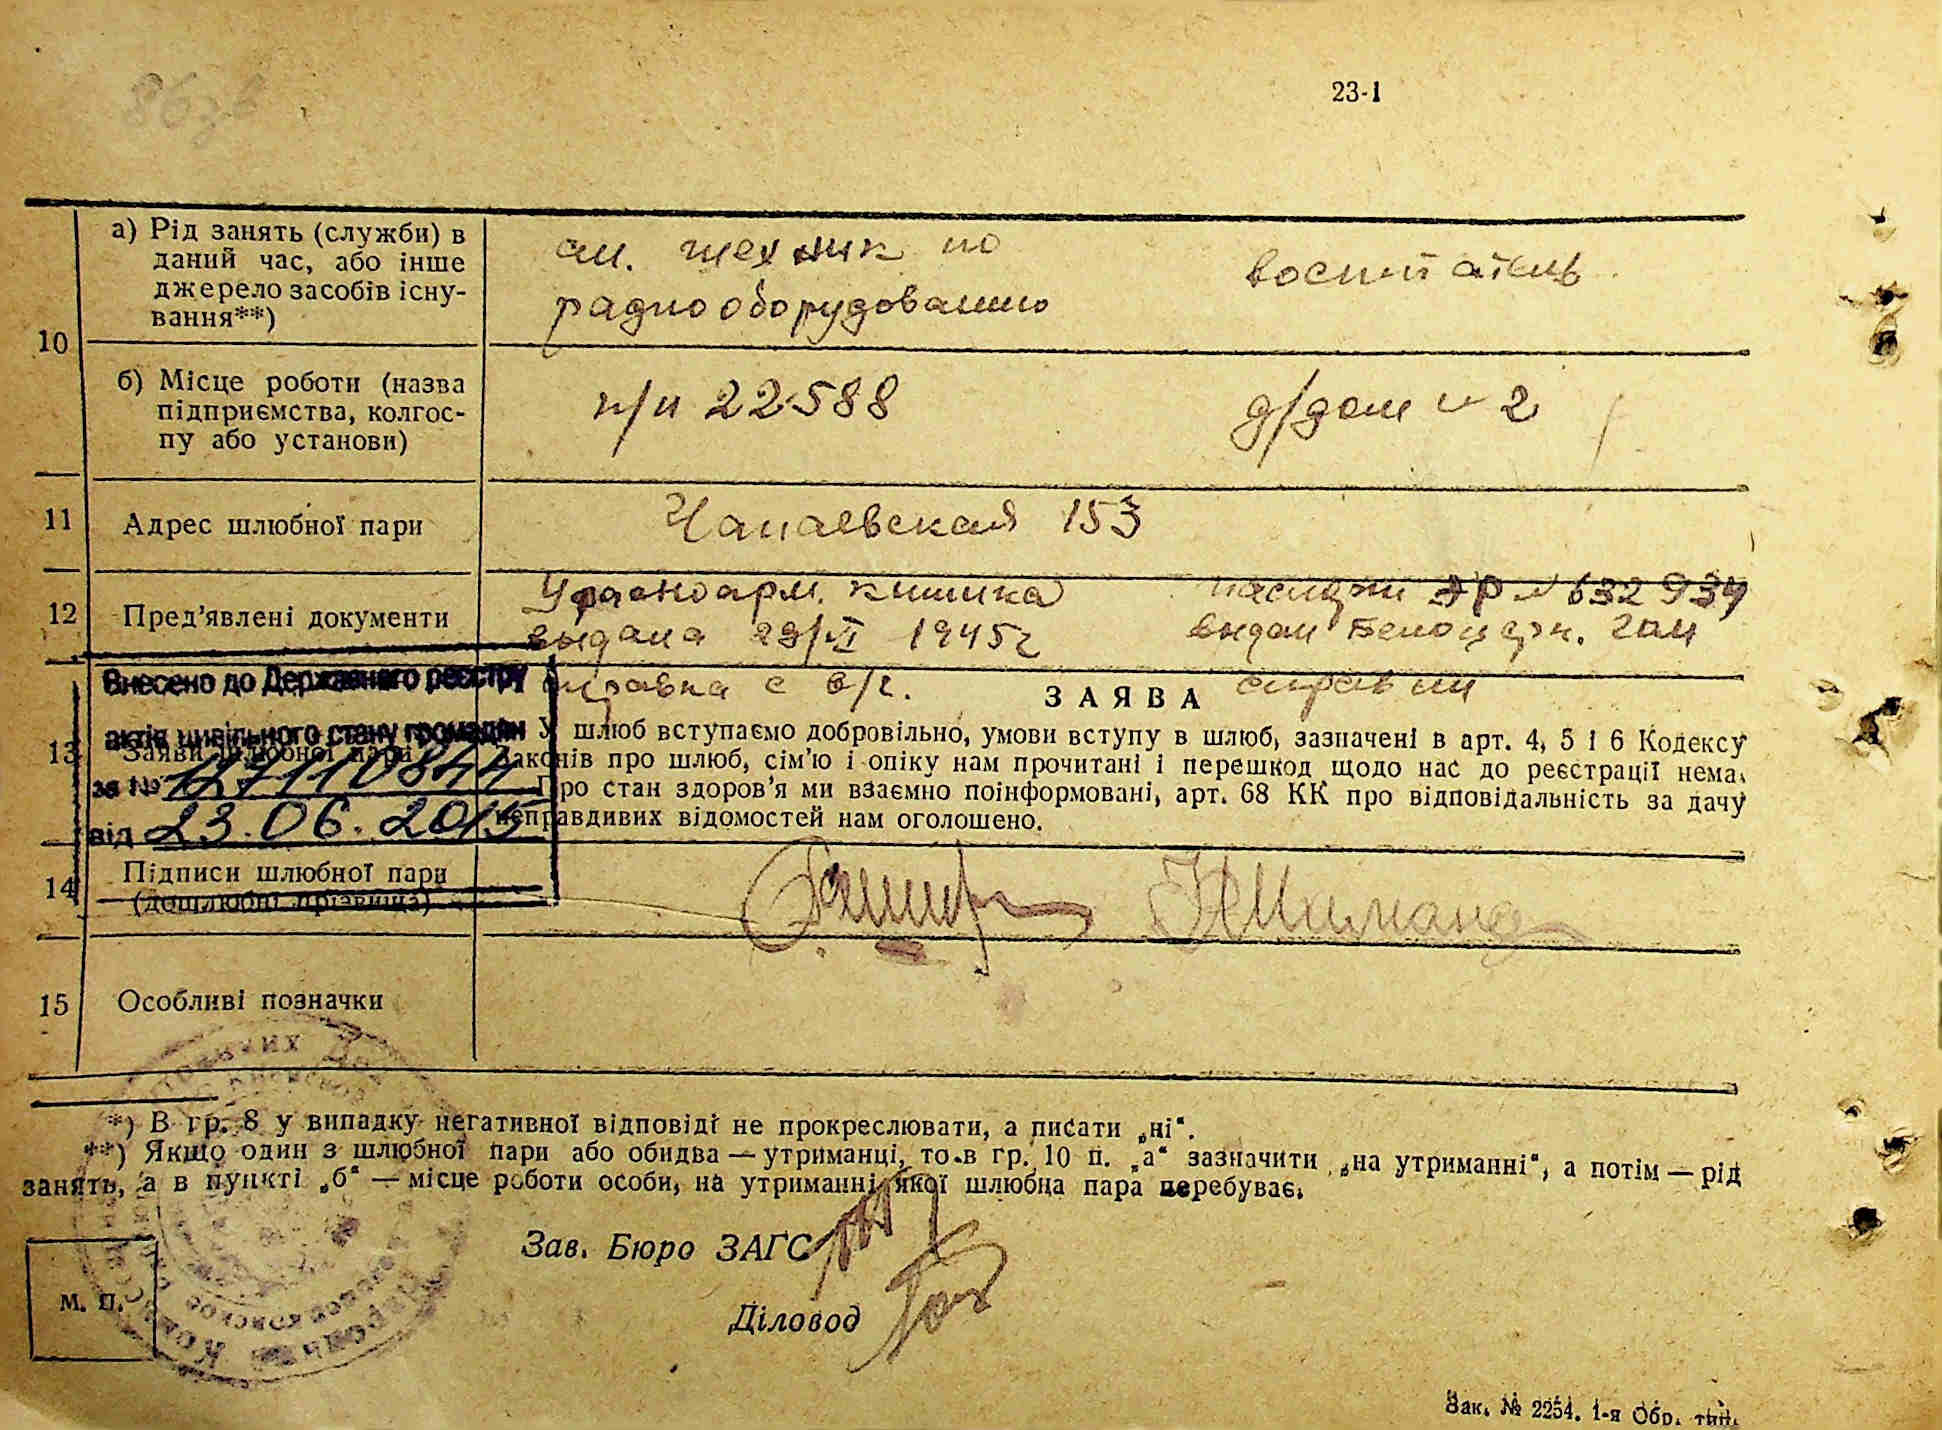 23-1
10
а) Рід занять (служби) в
даний час, або інше
джерело засобів існу-
вання**)
ст. техник по
радиооборудованию
воспитатель
б) Місце роботи (назва
підприємства, колгос-
пу або установи)
п/п 22588
д/дом № 2
11
Адрес шлюбної пари
Чапаевская 153
12
Пред’явлені документи
Красноарм. книжка
выдана 29/VI 1945г
справка с в/ч.
паспорт № 632934
выдан Белоцерк. ГОМ
справки
13
Заяви шлюбної пари
Внесено до Державного реєстру
актів цивільного стану громадян
за №
від 23.06.2015
ЗАЯВА
У шлюб вступаємо добровільно, умови вступу в шлюб, зазначені в арт. 4, 5 і 6 Кодексу
законів про шлюб, сім’ю і опіку нам прочитані і перешкод щодо нас до реєстрації нема.
Про стан здоров’я ми взаємно поінформовані, арт. 68 КК про відповідальність за дачу
неправдивих відомостей нам оголошено.
14
Підписи шлюбної пари
(дошлюбні прізвища)
15
Особливі позначки
*) В гр. 8 у випадку негативної відповіді не прокреслювати, а писати „ні“.
**) Якщо один з шлюбної пари або обидва — утриманці, то в гр. 10 п. „а“ зазначити „на утриманні“, а потім — рід
занять, а в пункті „б“ — місце роботи особи, на утриманні якої шлюбна пара перебуває.
Зав. Бюро ЗАГС
Діловод
М. П.
Зак. № 2254. 1-я Обр. тип.